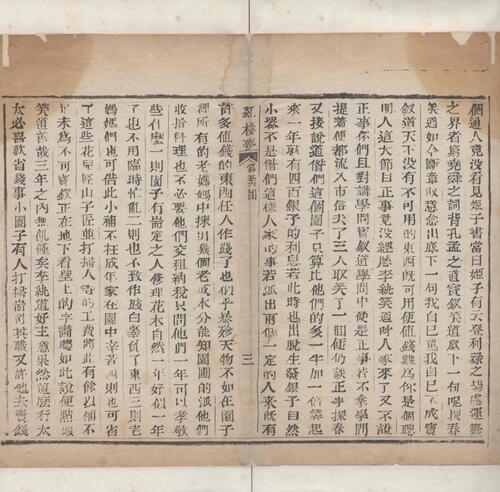 個通人竟沒看見姬子書當日姬子有云登利祿之塲處運籌
之界者窮堯舜之詞背孔孟之道寶釵笑道底下一句呢探春
笑道如今斷章取意念出底下一句我自己罵我自己不成寶
釵道天下沒有不可用的東西旣可用便值錢難為你是個聰
明人這大節目正事竟沒經歷李紈笑道叫人家來了又不說
正事你們且對講學問寶釵道學問中便是正事若不拿學問
提着便都流入市俗去了三人取笑了一回便仍談正事探春
又接說道偺們這個園子只算比他們的多一半加一倍算起
來一年就有四百銀子的利息若此時也出脫生發銀子自然
小器不是偺們這樣人家的事若派出兩個一定的人來旣有
紅樓夢 第五六回 三
許多值錢的東西任人作踐了也似乎暴殄天物不如在園子
裡所有的老媽媽中揀出幾個老成本分能知園圃的派他們
收拾料理也不必要他們交租納稅只問他們一年可以孝敬
些什麼一則園子有耑定之人修理花木自然一年好似一年
了也不用臨時忙亂二則也不致作踐白辜負了東西三則老
媽媽們也可借此小補不枉成年家在園中辛苦四則也可省
了這些花兒匠山子匠並打掃人等的工費將此有餘以補不
足未為不可寶釵正在地下看壁上的字畫聽如此說便點頭
笑道善哉三年之內無飢饉矣李紈道好主意果然這麽行太
太必喜歡省錢事小園子有人打掃專司其職又許他去賣錢